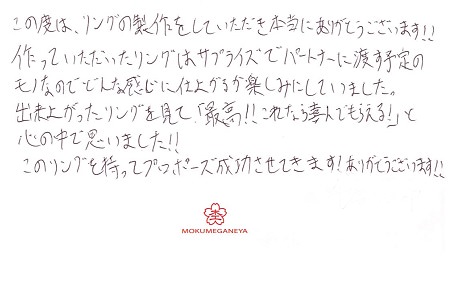 この度は、リングの製作をしていただき本当にありがとうございます!!
作っていただいたリングはサプライズでパートナーに渡す予定の
モノなのでどんな感じに仕上がるか楽しみにしていました。
出来上がったリングを見て「最高!!これなら喜んでもらえる!」と
心の中で思いました!!
このリングを持ってプロポーズ成功させてきます!ありがとうございます!!
MOKUMEGANEYA